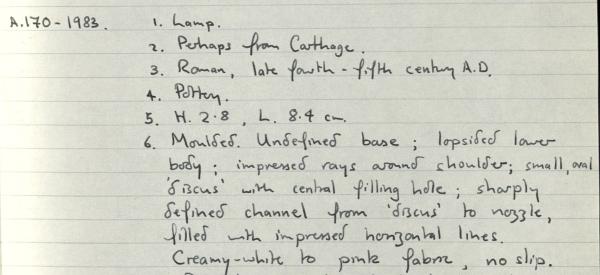 A.170-1983. 1. Lamp.
2. Perhaps from Carthage.
3. Roman, late fourth - fifth century A.D.
4. Pottery.
5. H. 2.8, L. 8.4 cm.
6. Moulded. Undefined base; lopsided lower
body; impressed rays around shoulder; small, oval
'discus' with central filling hole; sharply
defined channel from 'discus' to nozzle,
filled with impressed horizontal lines.
Creamy-white to pink fabric, no slip.